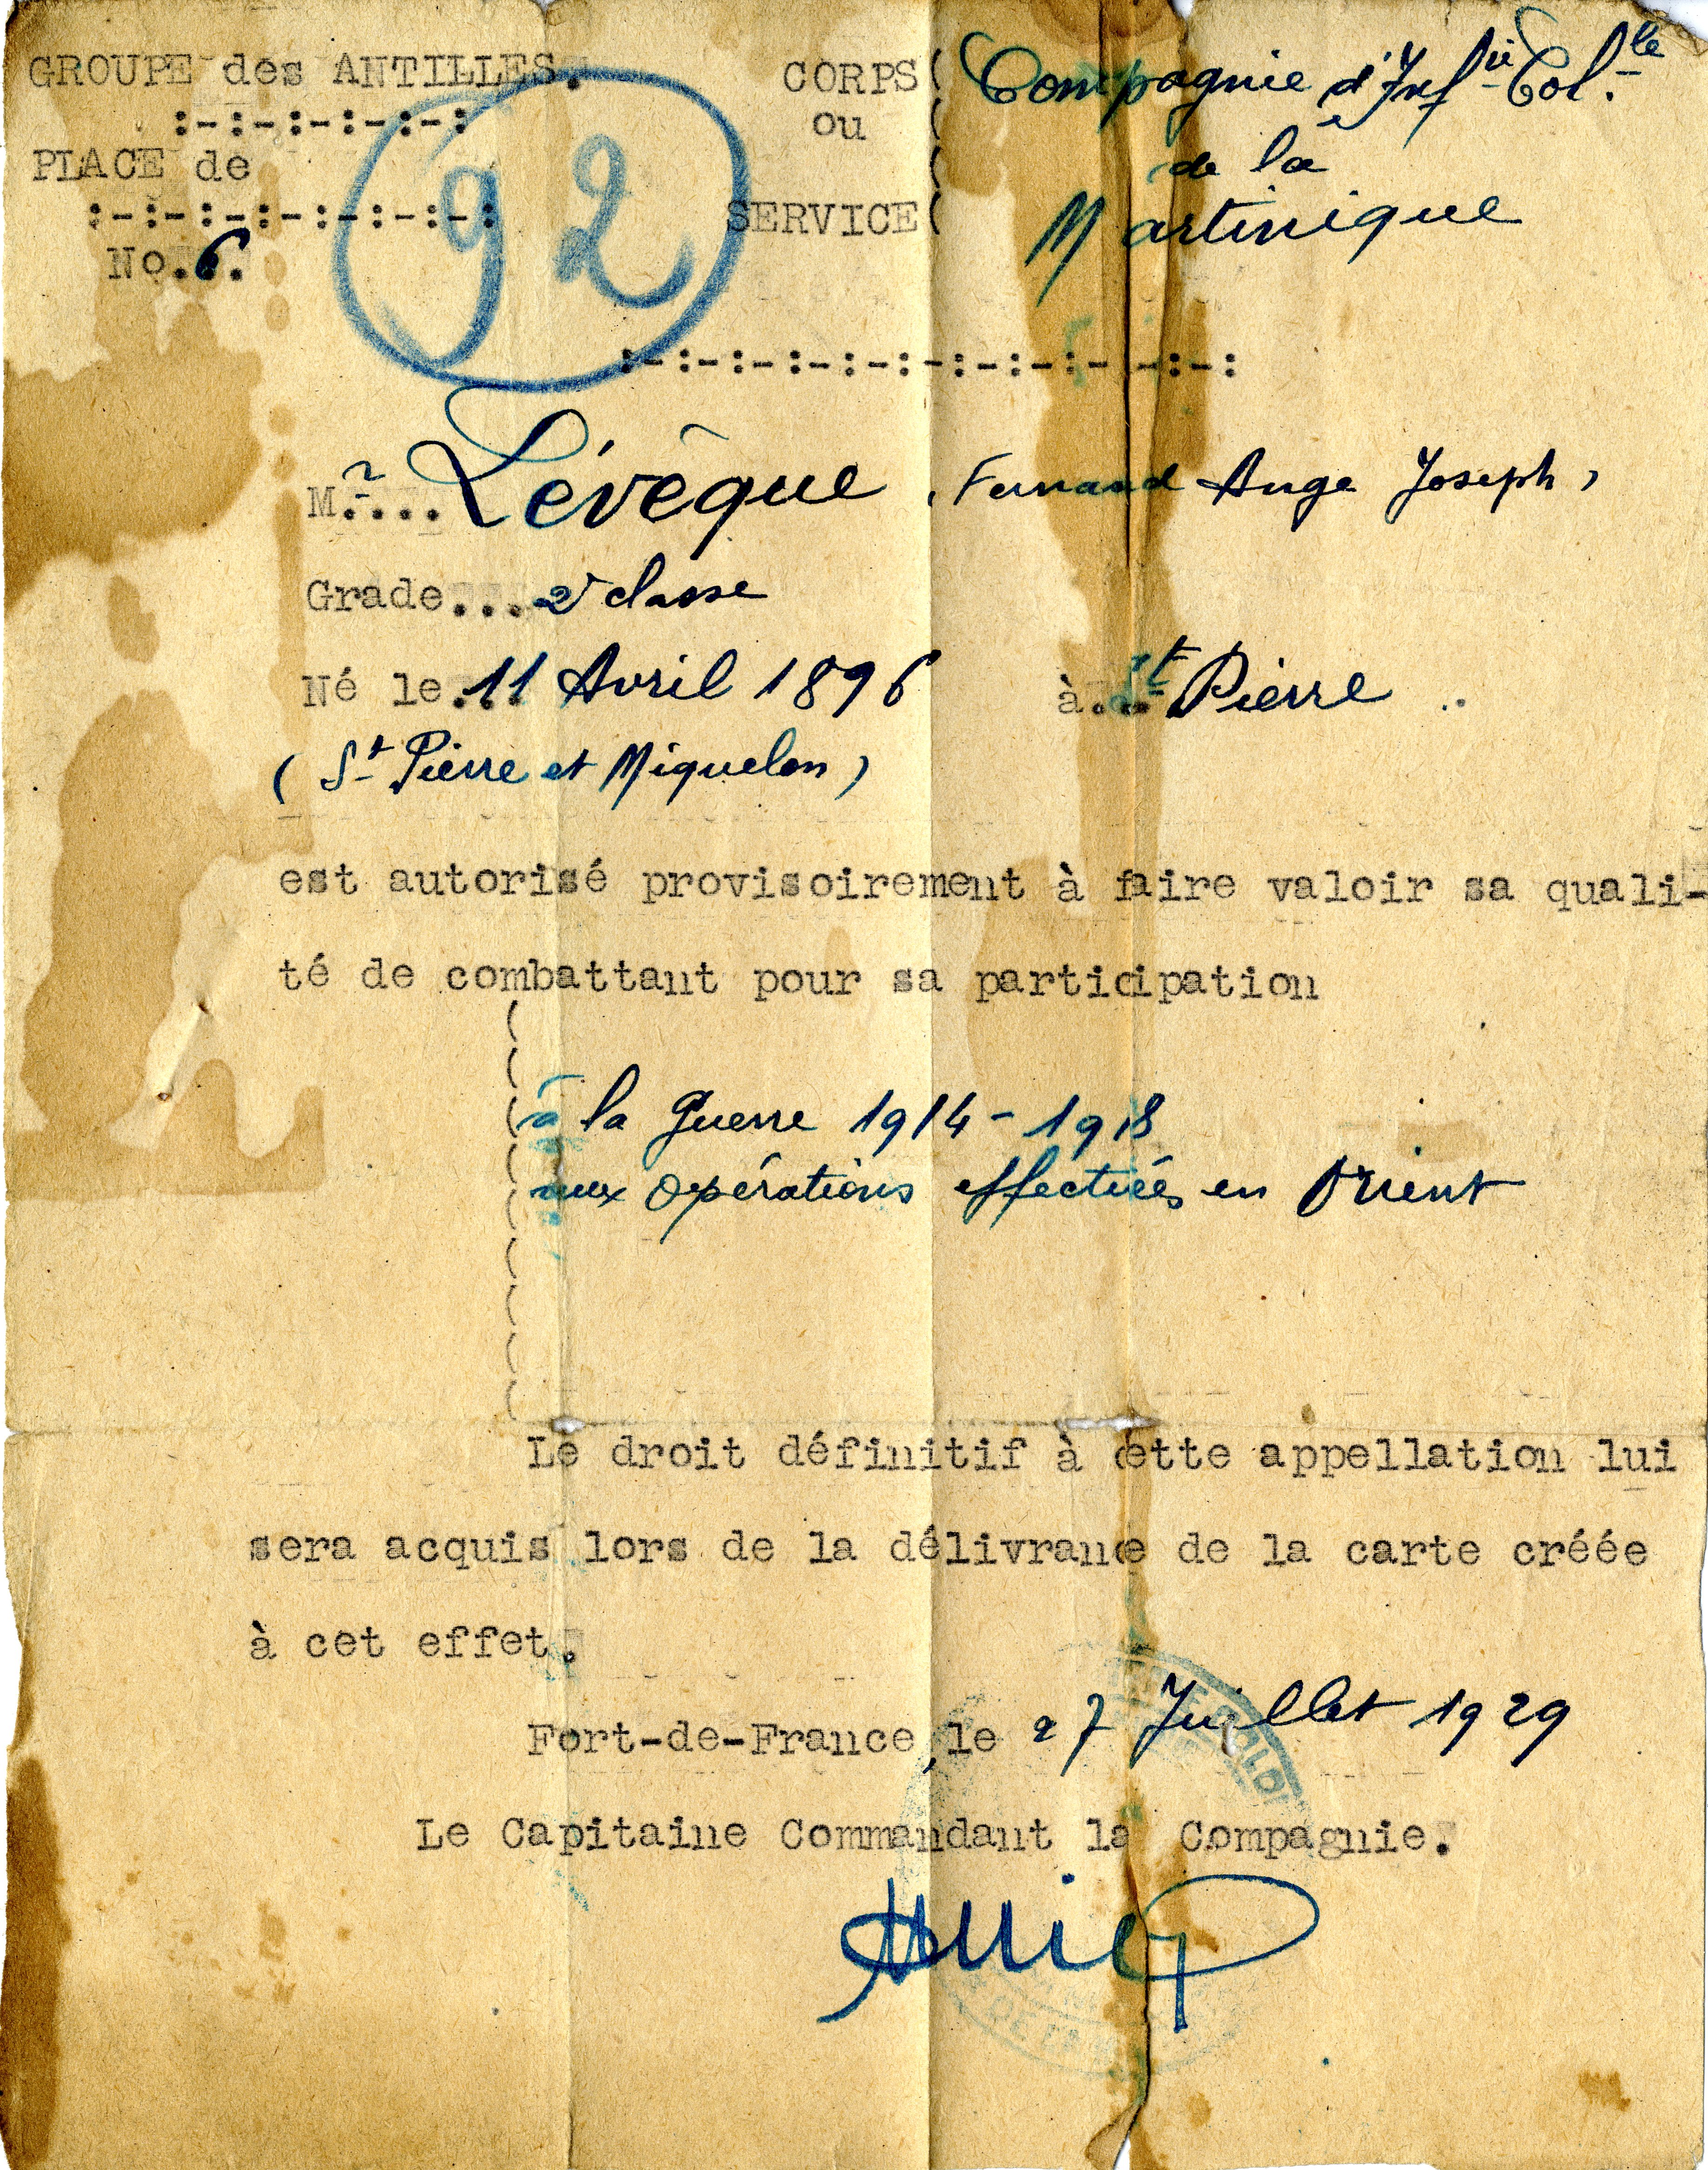 GROUPE des ANTILLES.
:-:-:-:-:-:
PLACE de
:-:-:-:-:-:-:-:
No.6.
92
CORPS
ou
SERVICE
Compagnie d'Inf^ie Col^le
de la
Martinique
:-:-:-:-:-:-:-:-:-:-:-:
Mr.... Lévêque, Fernand Ange Joseph,
Grade... 2e classe
Né le.11 Avril 1896 à... St Pierre ..
(St Pierre et Miquelon)
est autorisé provisoirement à faire valoir sa quali-
té de combattant pour sa participation
à la Guerre 1914-1918
aux opérations effectuées en Orient
Le droit définitif à cette appellation lui
sera acquis lors de la délivrance de la carte créée
à cet effet.
Fort-de-France, le 27 Juillet 1929
Le Capitaine Commandant la Compagnie.